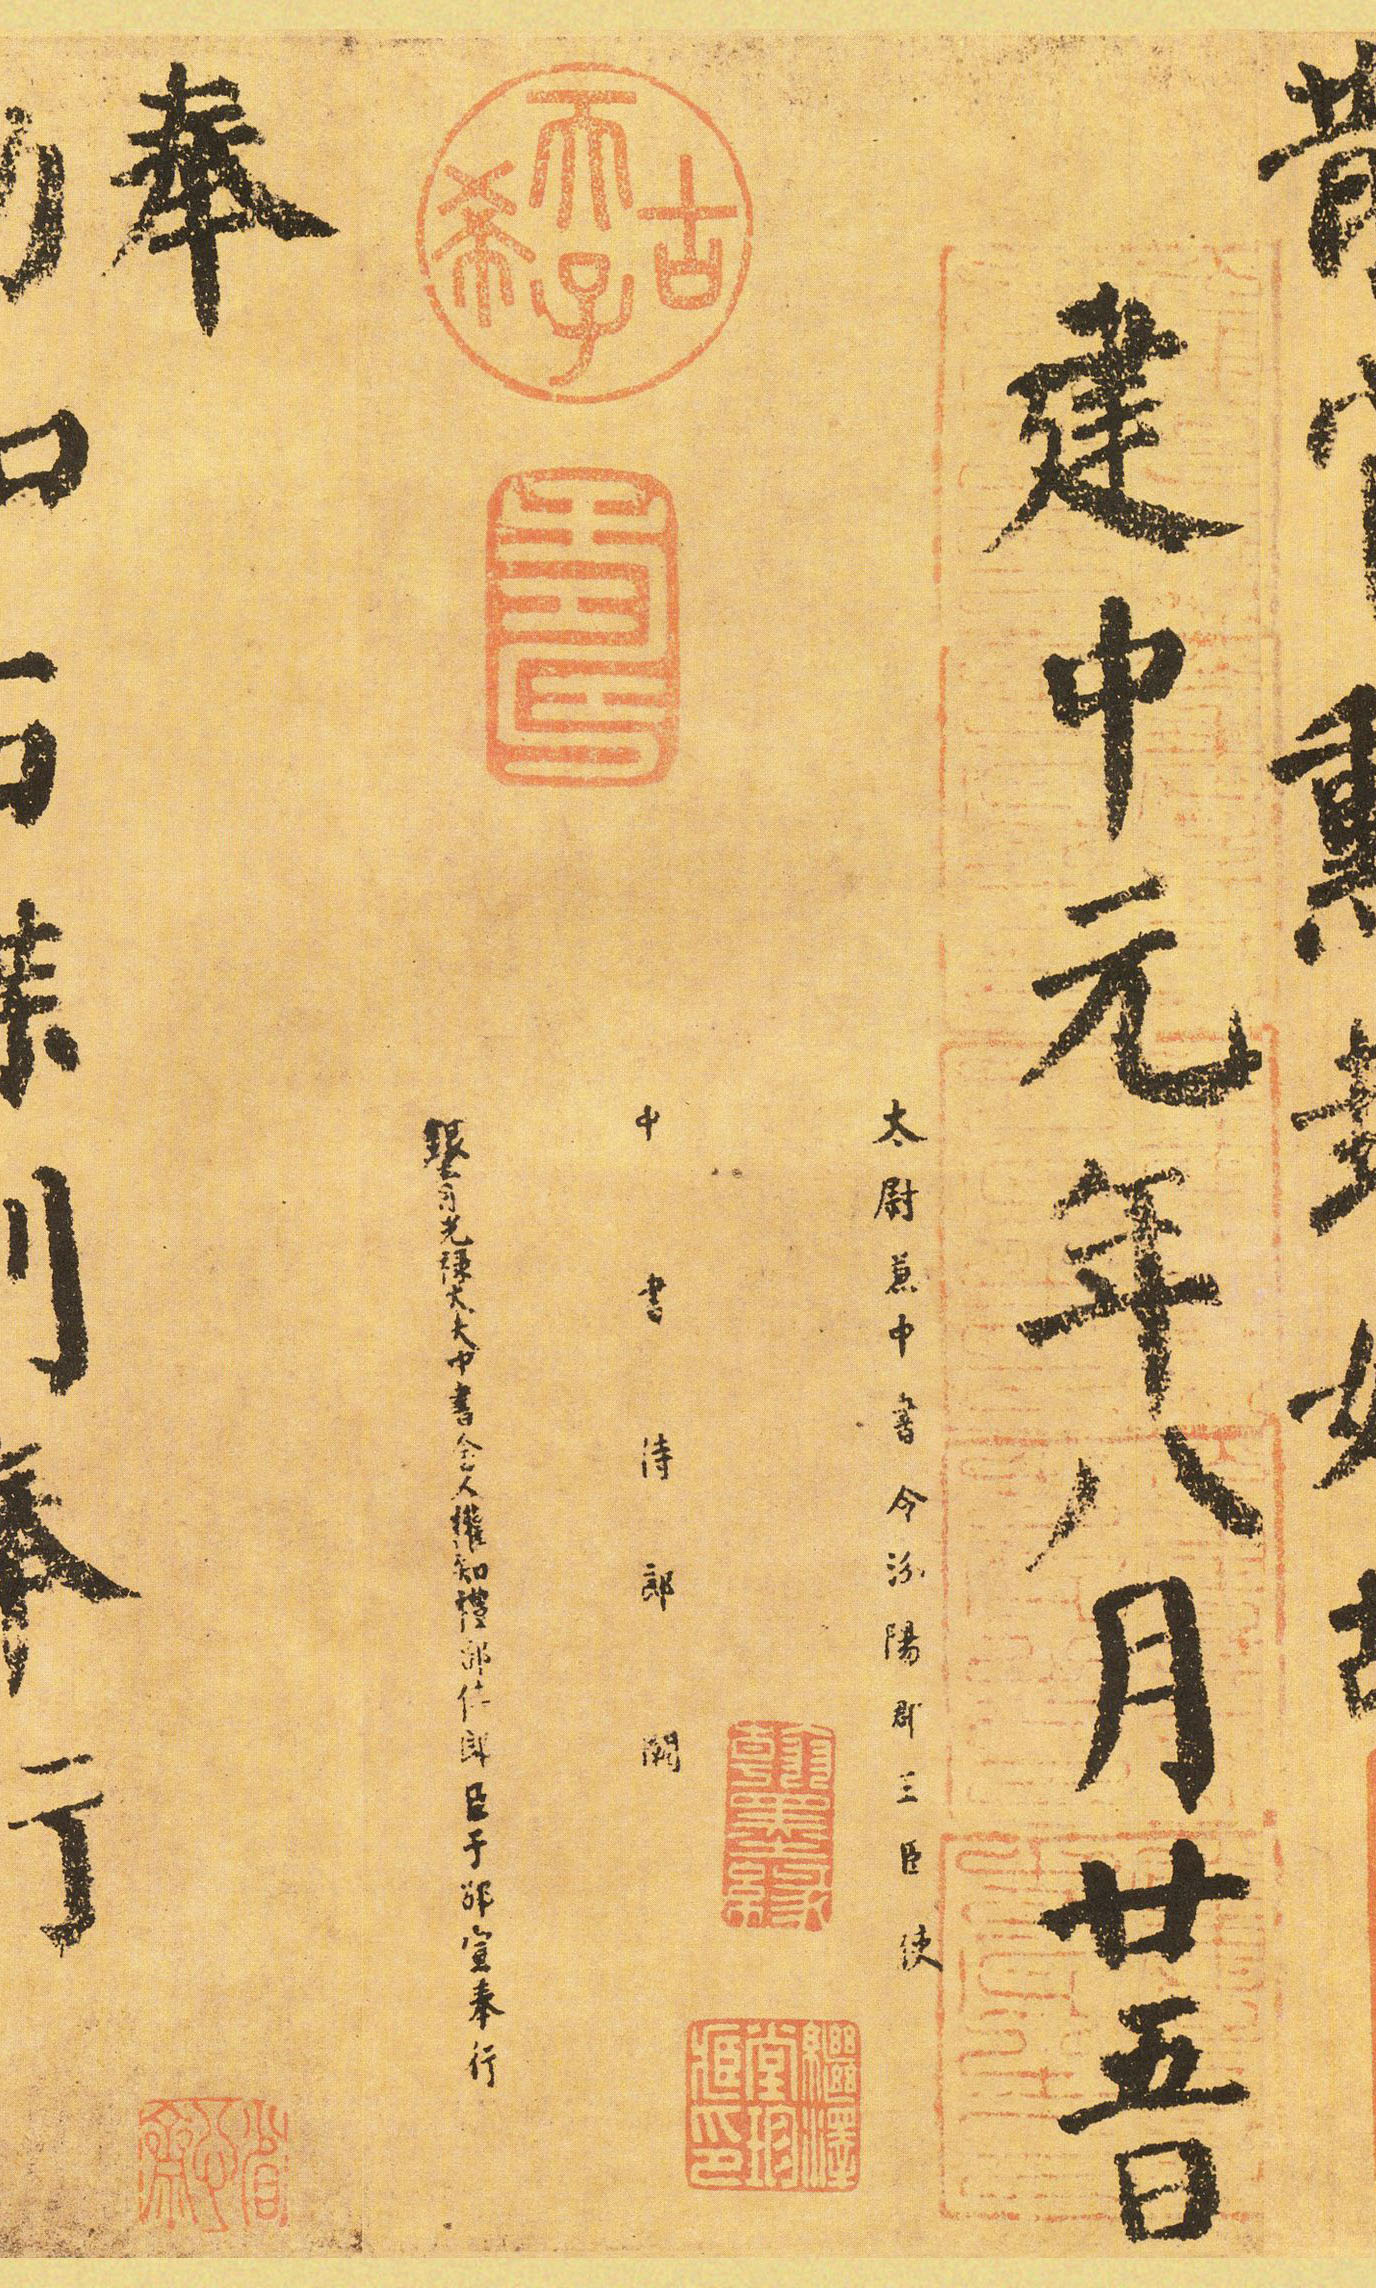 散官勳封如故
建中元年八月廿五日
太尉兼中書令汾陽郡王臣使
中書侍郎闕
銀青光祿大夫中書舍人權知禮部侍郎臣于邵宣奉行
奉
勅如右牒到奉行
古希天子
壽